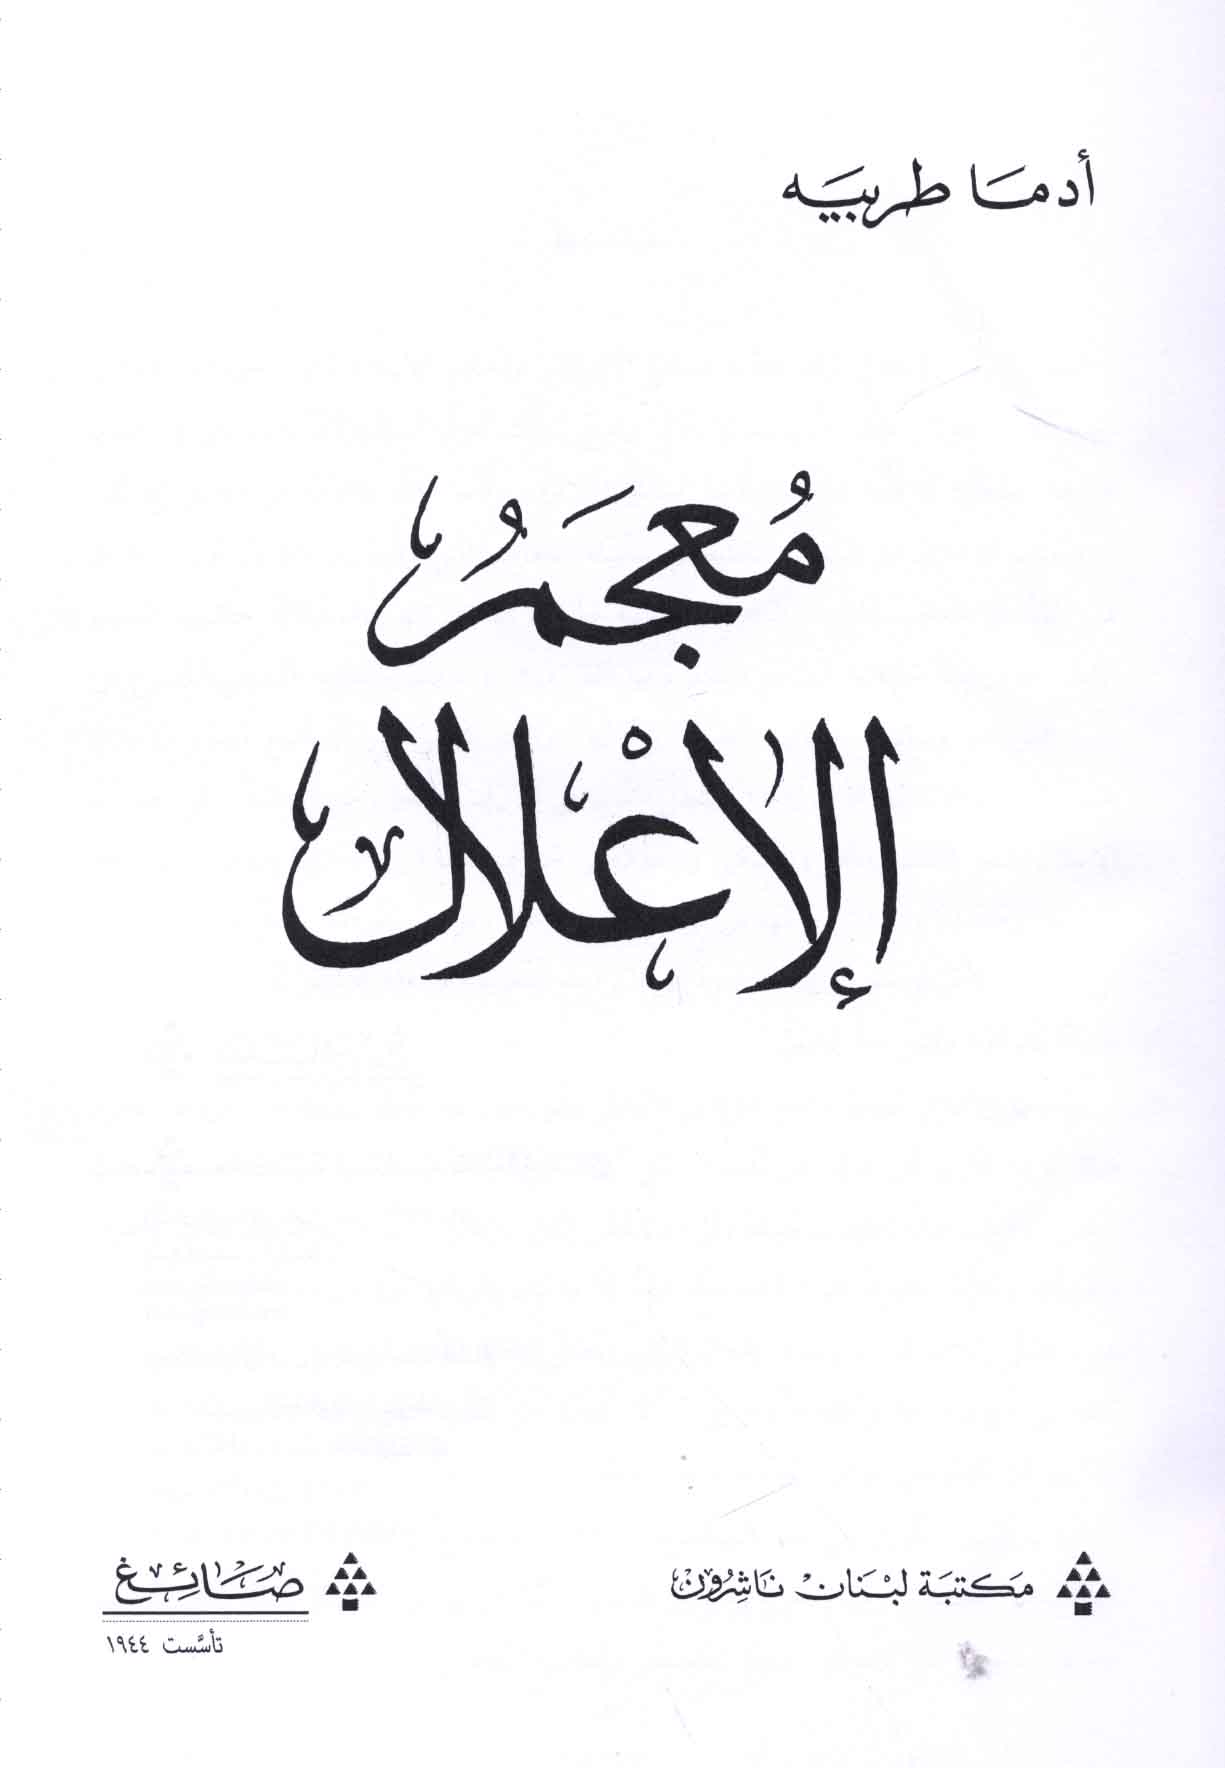 أدما طربيه
مُعجَمُ
الإِعْلال
مكتبة لبْنَان نَاشِرُون
صَائِغ
تأسَّست ١٩٤٤